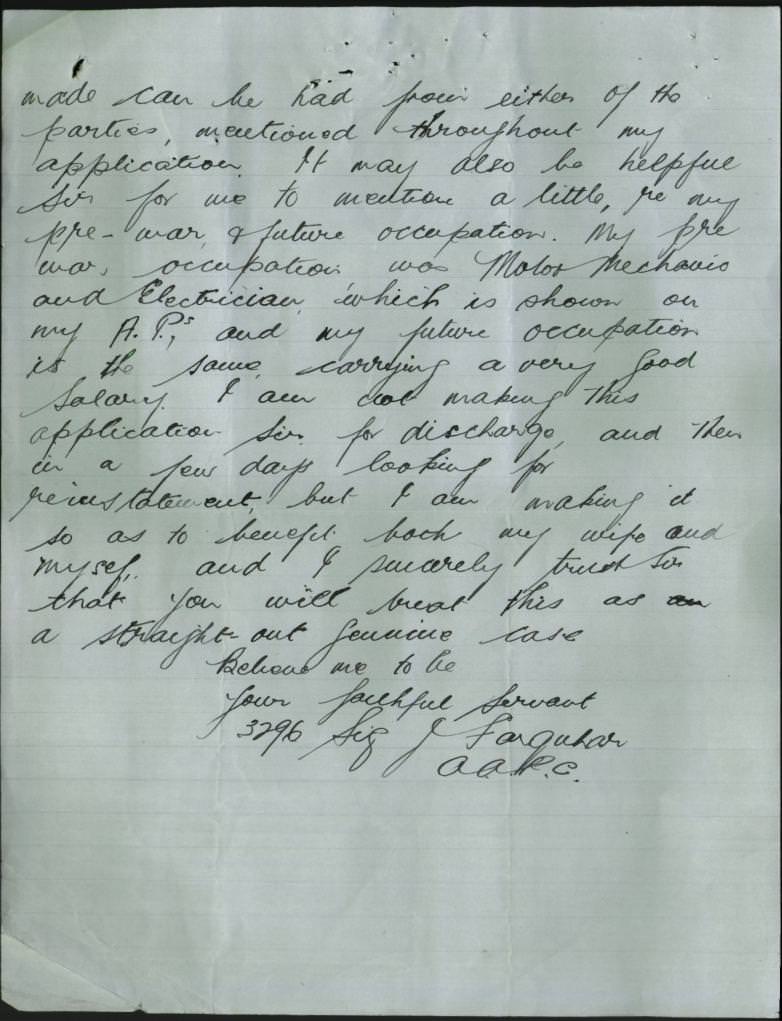 made can be had from either of the
parties, mentioned throughout my
application. It may also be helpful
Sir for me to mention a little, re my
pre-war, & future occupation. My pre
war, occupation was Motor Mechanic
and Electrician, which is shown on
my A.P.s, and my future occupation
is the same, carrying a very good
Salary. I am not making this
application Sir, for discharge, and then
in a few days looking for
reinstatement, but I am making it
so as to benefit both my wife and
myself, and I sincerely trust Sir
that you will treat this as an
a straight-out genuine case
Believe me to be
Your faithful Servant
3296 Sig J Farquhar